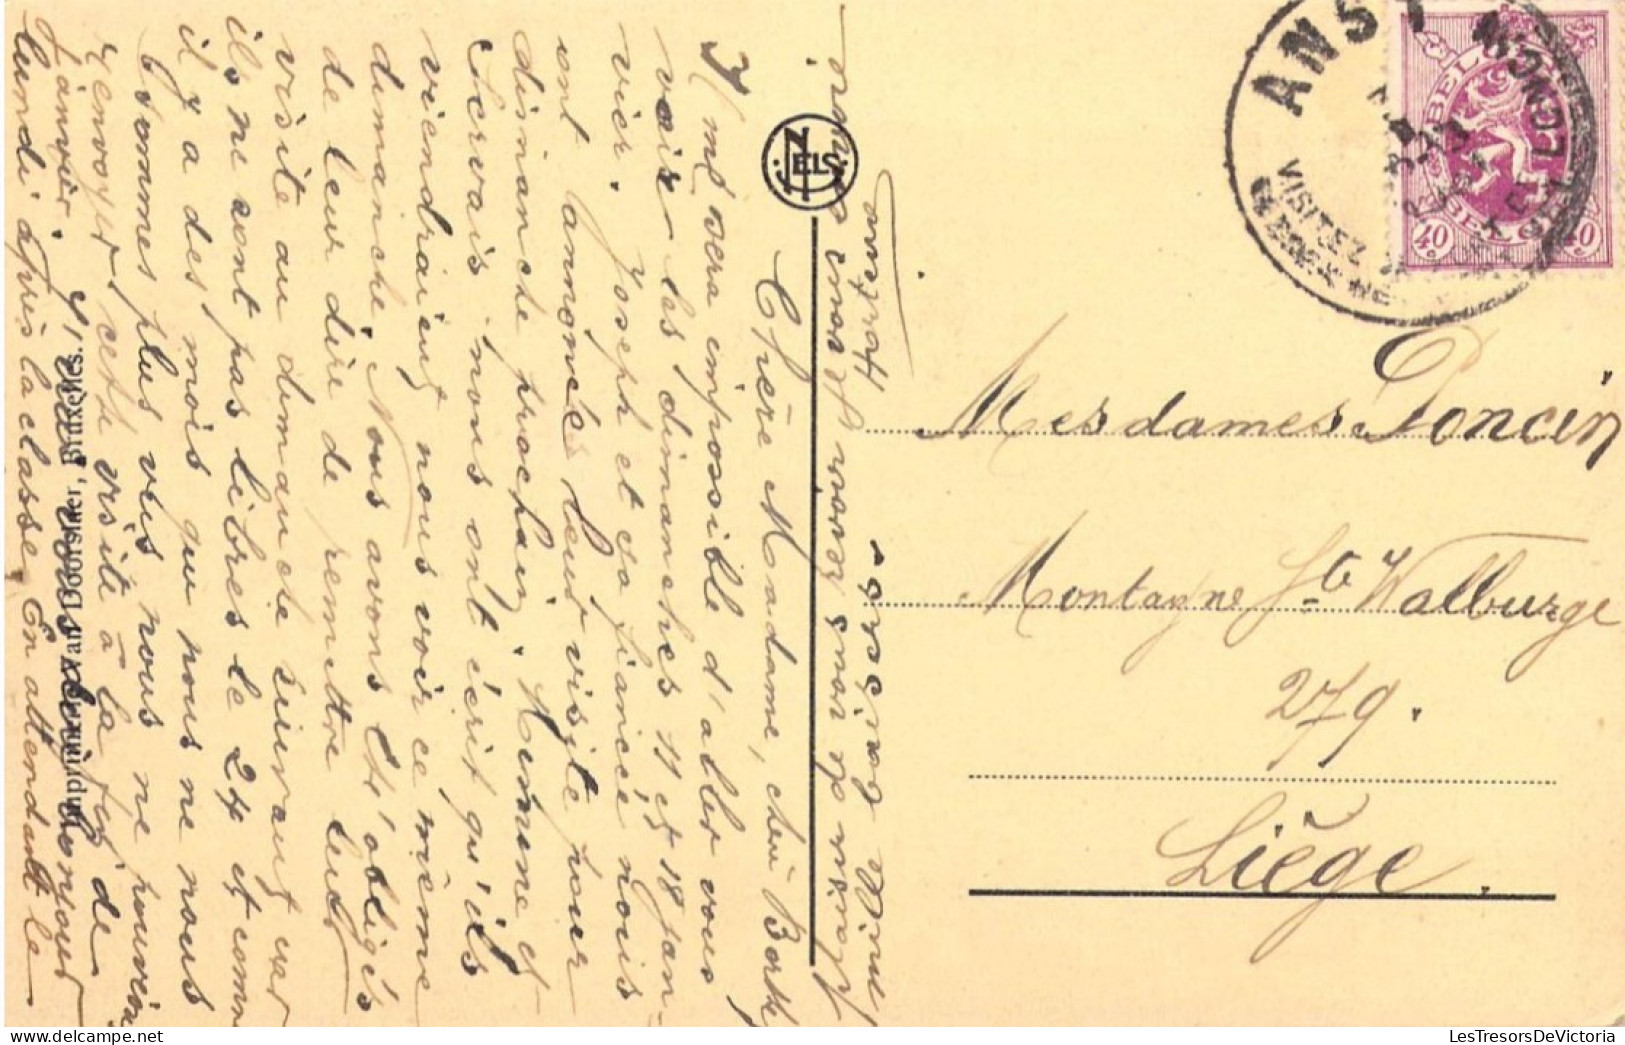 Chère Madame, cher
Il me sera impossible d'aller vous
voir les dimanches 11 et 18 jan-
vier. Joseph et sa fiancée nous
ont annoncé leur visite pour
dimanche prochain. Hermine et
Servais nous ont écrit qu'ils
viendraient nous voir ce même
dimanche. Nous avons été obligés
de leur dire de remettre leur
visite au dimanche suivant car
ils ne sont pas libres le 24 et comme
il y a des mois que nous ne nous
sommes plus vus nous ne pouvions
renvoyer cette visite à la fin de
janvier.
lundi après la classe. En attendant le
plaisir de vous revoir je vous envoie
mille baisers.
Hortense
NELS
Imprimerie Van Doorslaer, Bruxelles.
ANS
VISITEZ
BELGIE
BELGIQUE
40 40
Mesdames Poncin
Montagne Ste Walburge
279.
Liège.
LesTresorsDeVictoria